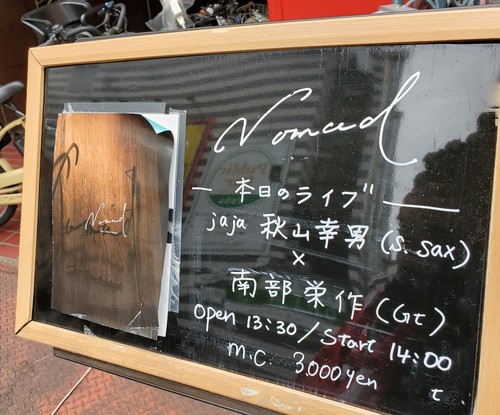 Nomad
Nomad
— 本日のライブ" —
jaja 秋山幸男 (S. Sax)
×
南部栄作 (Gt)
open 13:30 / Start 14:00
m.c. 3.000yen